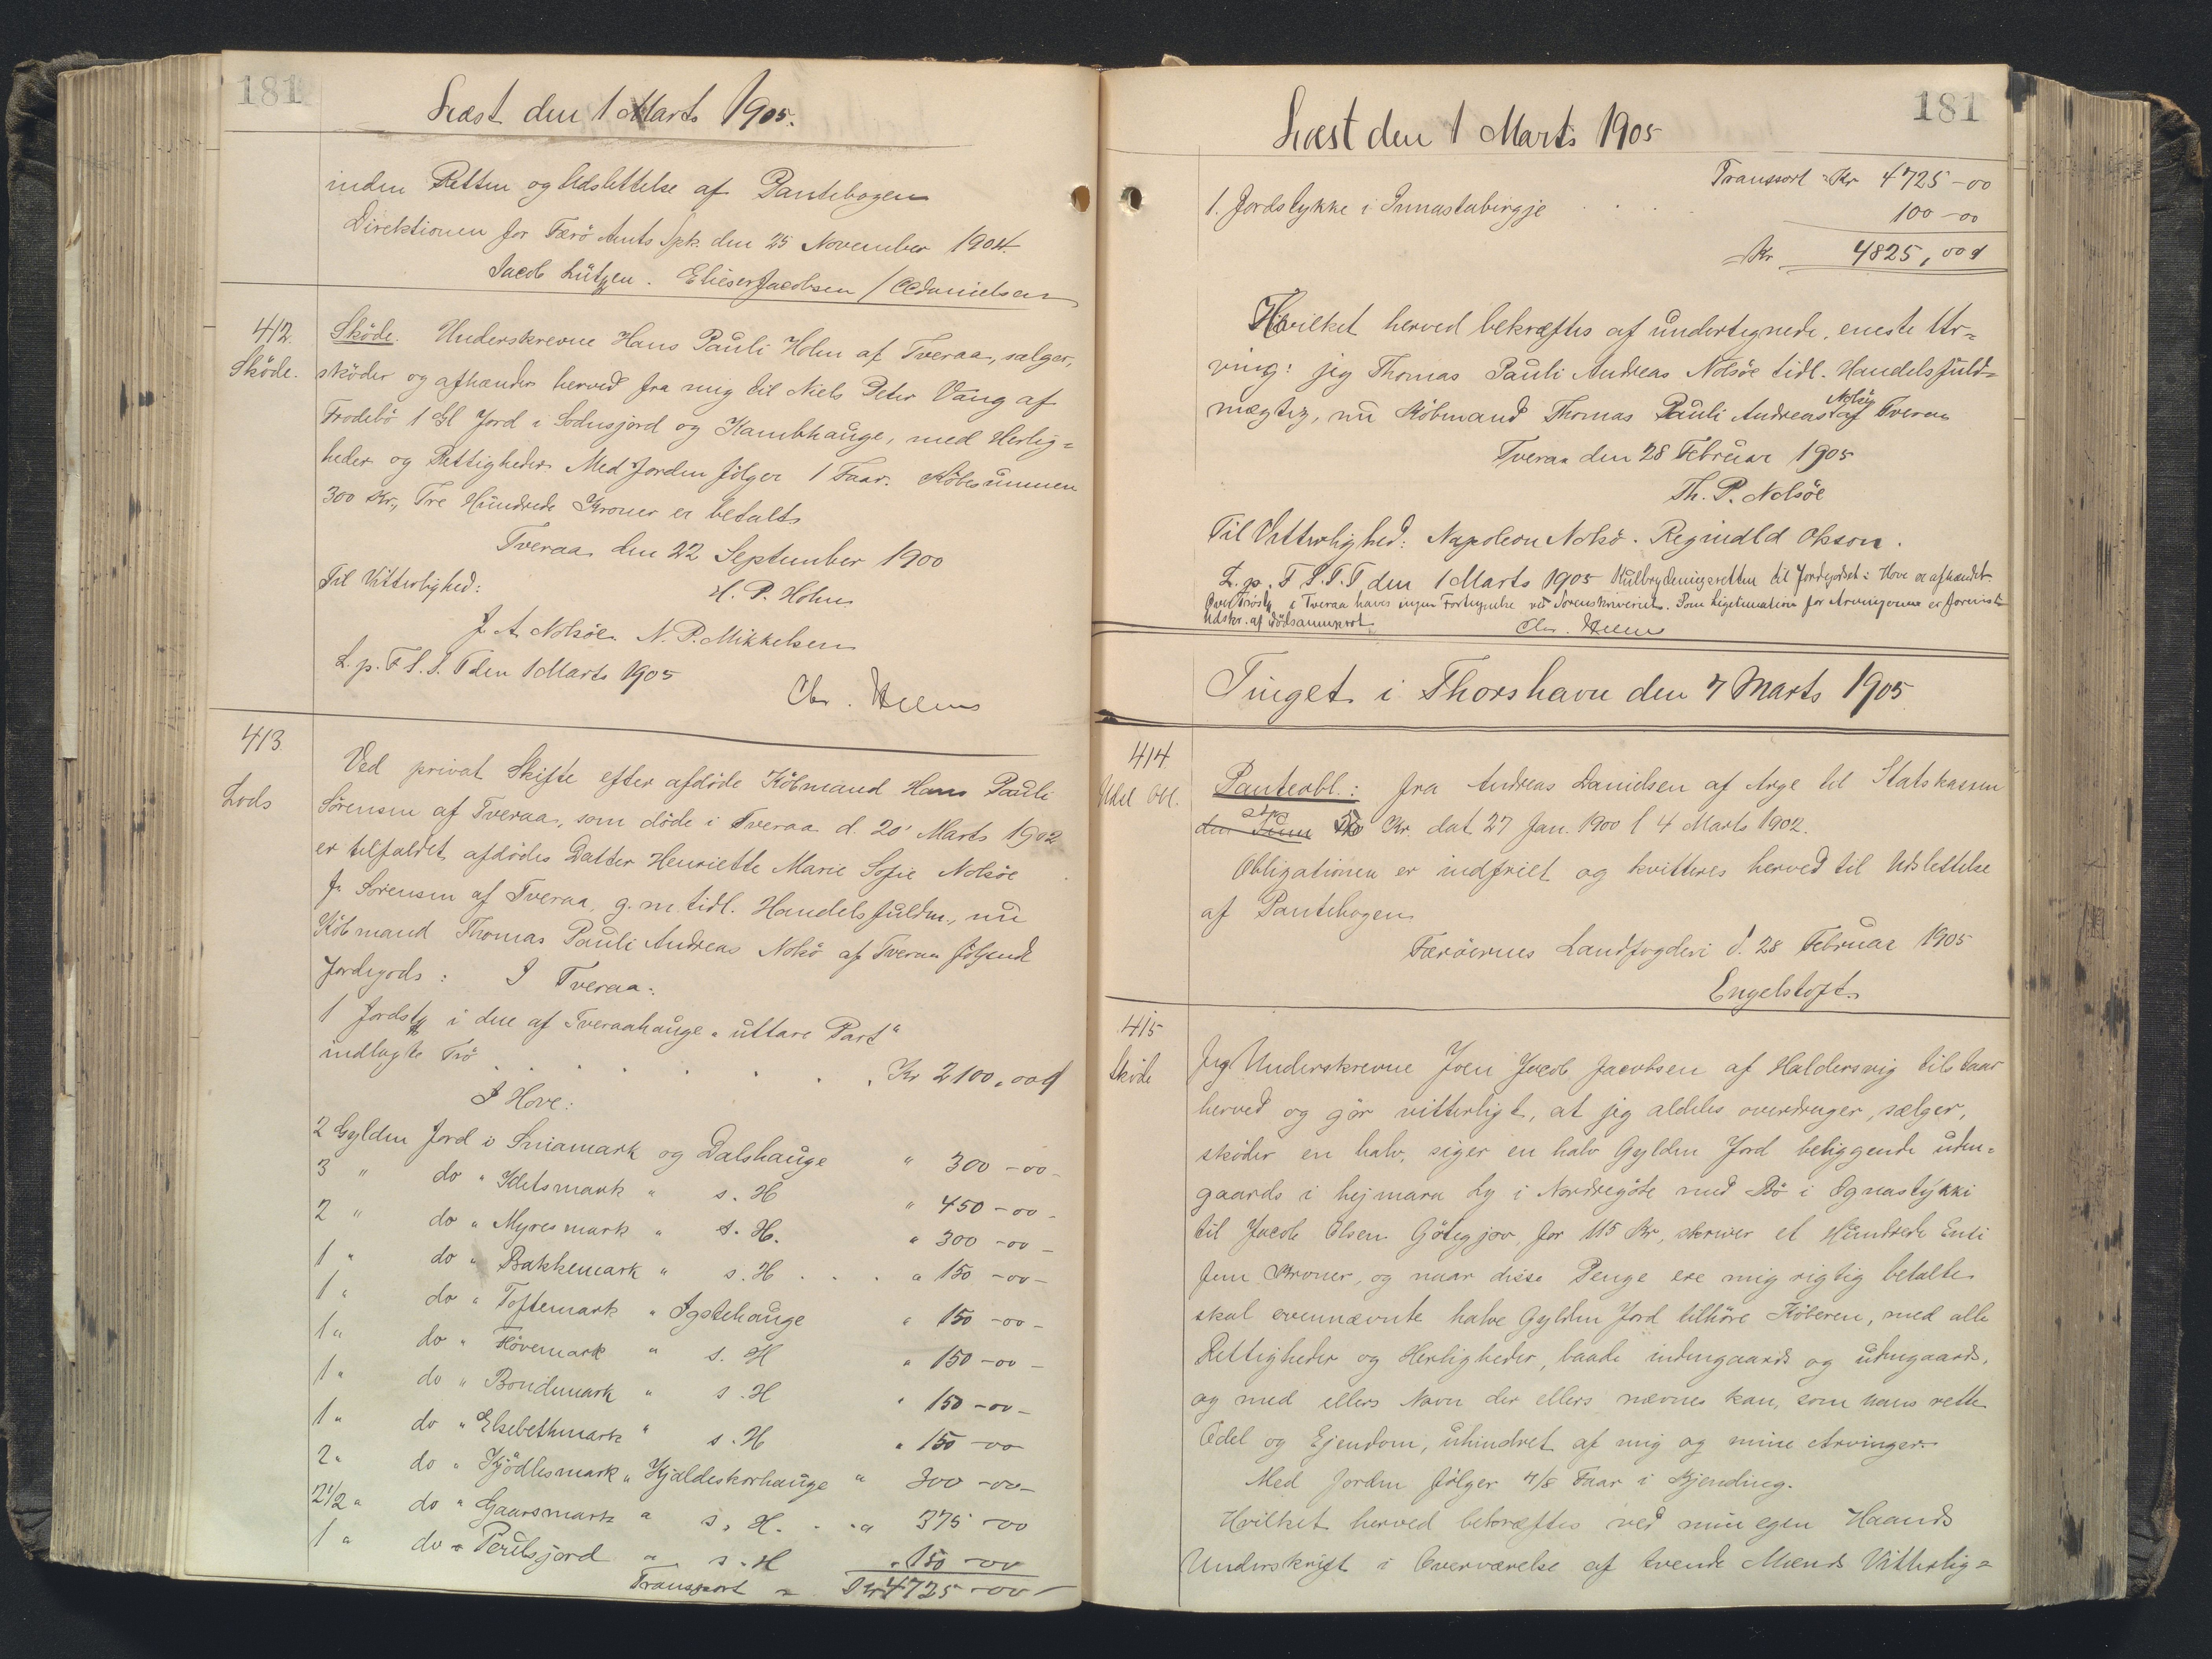 181
Læst den 1 Marts 1905.
inden Retten og Udslettelse af Pantebogen
Direktionen for Færö Amts Spk. den 25 November 1904.
Jacob Lützen. Elieser Jacobsen / CCDanielsen
412.
Sköde.
Sköde. Underskrevne Hans Pauli Holm af Tveraa, sælger,
sköder og afhænder herved fra mig til Niels Peter Vang af
Frodebö 1 Gl Jord i Sodnsjord og Kambhauge, med Herlig=
heder og Rettigheder. Med Jorden fölger 1 Faar. Köbesummen
300 Kr., Tre Hundrede Kroner er betalt.
Tveraa den 22 September 1900
Til Vitterlighed:
H. P. Holm
J. A. Nolsöe. N. P. Mikkelsen
L. p. F. S. S. T den 1 Marts 1905
Chr. Helms
413
Lods
Ved privat Skifte efter afdöde Köbmand Hans Pauli
Sörensen af Tveraa, som döde i Tveraa d. 20' Marts 1902
er tilfaldet afdödes Datter Henriette Marie Sofie Nolsöe
f. Sörensen af Tveraa, g. m. tidl. Handelsfuldm., nu
Köbmand Thomas Pauli Andreas Nolsö af Tveraa fölgende
Jordegods: I Tveraa:
1 Jordstk i den af Tveraahauge "uttare Part"
indlagte Trö . . . . . . . Kr 2100,00
I Hove:
2 Gylden Jord i Sniamark og Dalshauge " 300-00-
3 " do " Kletsmark " s. H " 450-00-
2 " do " Myresmark " s. H. " 300-00-
1 " do " Bakkemark " s. H . . . " 150-00-
1 " do " Toftemark " Igstehauge " 150-00-
1 " do " Hövemark " s. H " 150-00-
1 " do " Bondemark " s. H " 150-00-
1 " do " Elsebethmark " s. H " 150-00
2 " do " Kjödlesmark " Kjaldeskorhauge " 300-00-
2 1/2 " do " Gaarsmark " s. H. . . " 375-00
1 " do " Perilsjord " s. H " 150-00
Transport = Kr 4725-00
181
Læst den 1 Marts 1905
Transport = Kr 4725-00
1. Jordstykke i Innastubirgje . . . 100-00
Kr. 4825,00
Hvilket herved bekræftes af undertegnede, eneste Ar=
ving: jeg Thomas Pauli Andreas Nolsöe tidl. Handelsfuld=
mægtig, nu Köbmand Thomas Pauli Andreas Nolsö af Tveraa
Tveraa den 28 Februar 1905
Th. P. Nolsöe
Til Vitterlighed: Napoleon Nolsö. Reginald Olsson.
L. p. F S. S. T den 1 Marts 1905 Hulbrydningsretten til Jordegodset i Hove er afhændet.
Over Tröstk i Tveraa haves ingen Fortegnelse ved Sorenskriveriet. Som Legitimation for Arvingerne er forevist
Udskr. af
Chr. Helms
Tinget i Thorshavn den 7 Marts 1905
414
Udsl Obl.
Panteobl.: fra Andreas Danielsen af Arge til Statskassen
Kr. dat 27 Jan. 1900 l 4 Marts 1902.
Obligationen er indfriet og kvitteres herved til Udslettelse
af Pantebogen
Færöernes Landfogderi d. 28 Februar 1905
Engelstoft.
415
Sköde
Jeg Underskrevne Joen Jacob Jacobsen af Haldersvig tilstaar
herved og gör vitterligt, at jeg aldeles overdrager, sælger,
sköder en halv, siger en halv Gylden Jord beliggende uden=
gaards i hejmara Ly i Nordregöte med Bö i Ognastykki
til Jacob Olsen Götegjov, for 115 Kr, skriver et Hundrede Enti
fem Kroner, og naar disse Penge ere mig rigtig betalte
skal ovennævnte halve Gylden Jord tilhöre Köberen, med alle
Rettigheder og Herligheder, baade indengaards og udengaards,
og med ellers Navn der ellers nævnes kan, som hans rette
Odel og Ejendom, uhindret af mig og mine Arvinger.
Med Jorden fölger 7/8 Faar i Gjending.
Hvilket herved bekræftes ved min egen Haands
Underskrift i Overværelse af tvende Mænds Vitterlig=